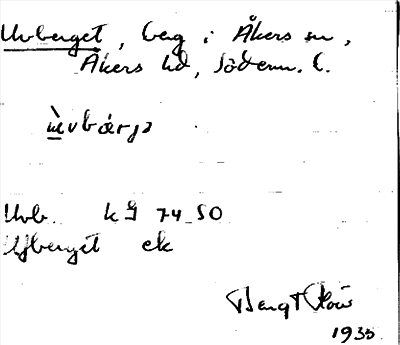 Uvberget, berg i Åkers sn,
Åkers hd, Söderm. l.
ùvbærjə
Uvb. k G 74 SO
Ufberget ek
Bengt
1935